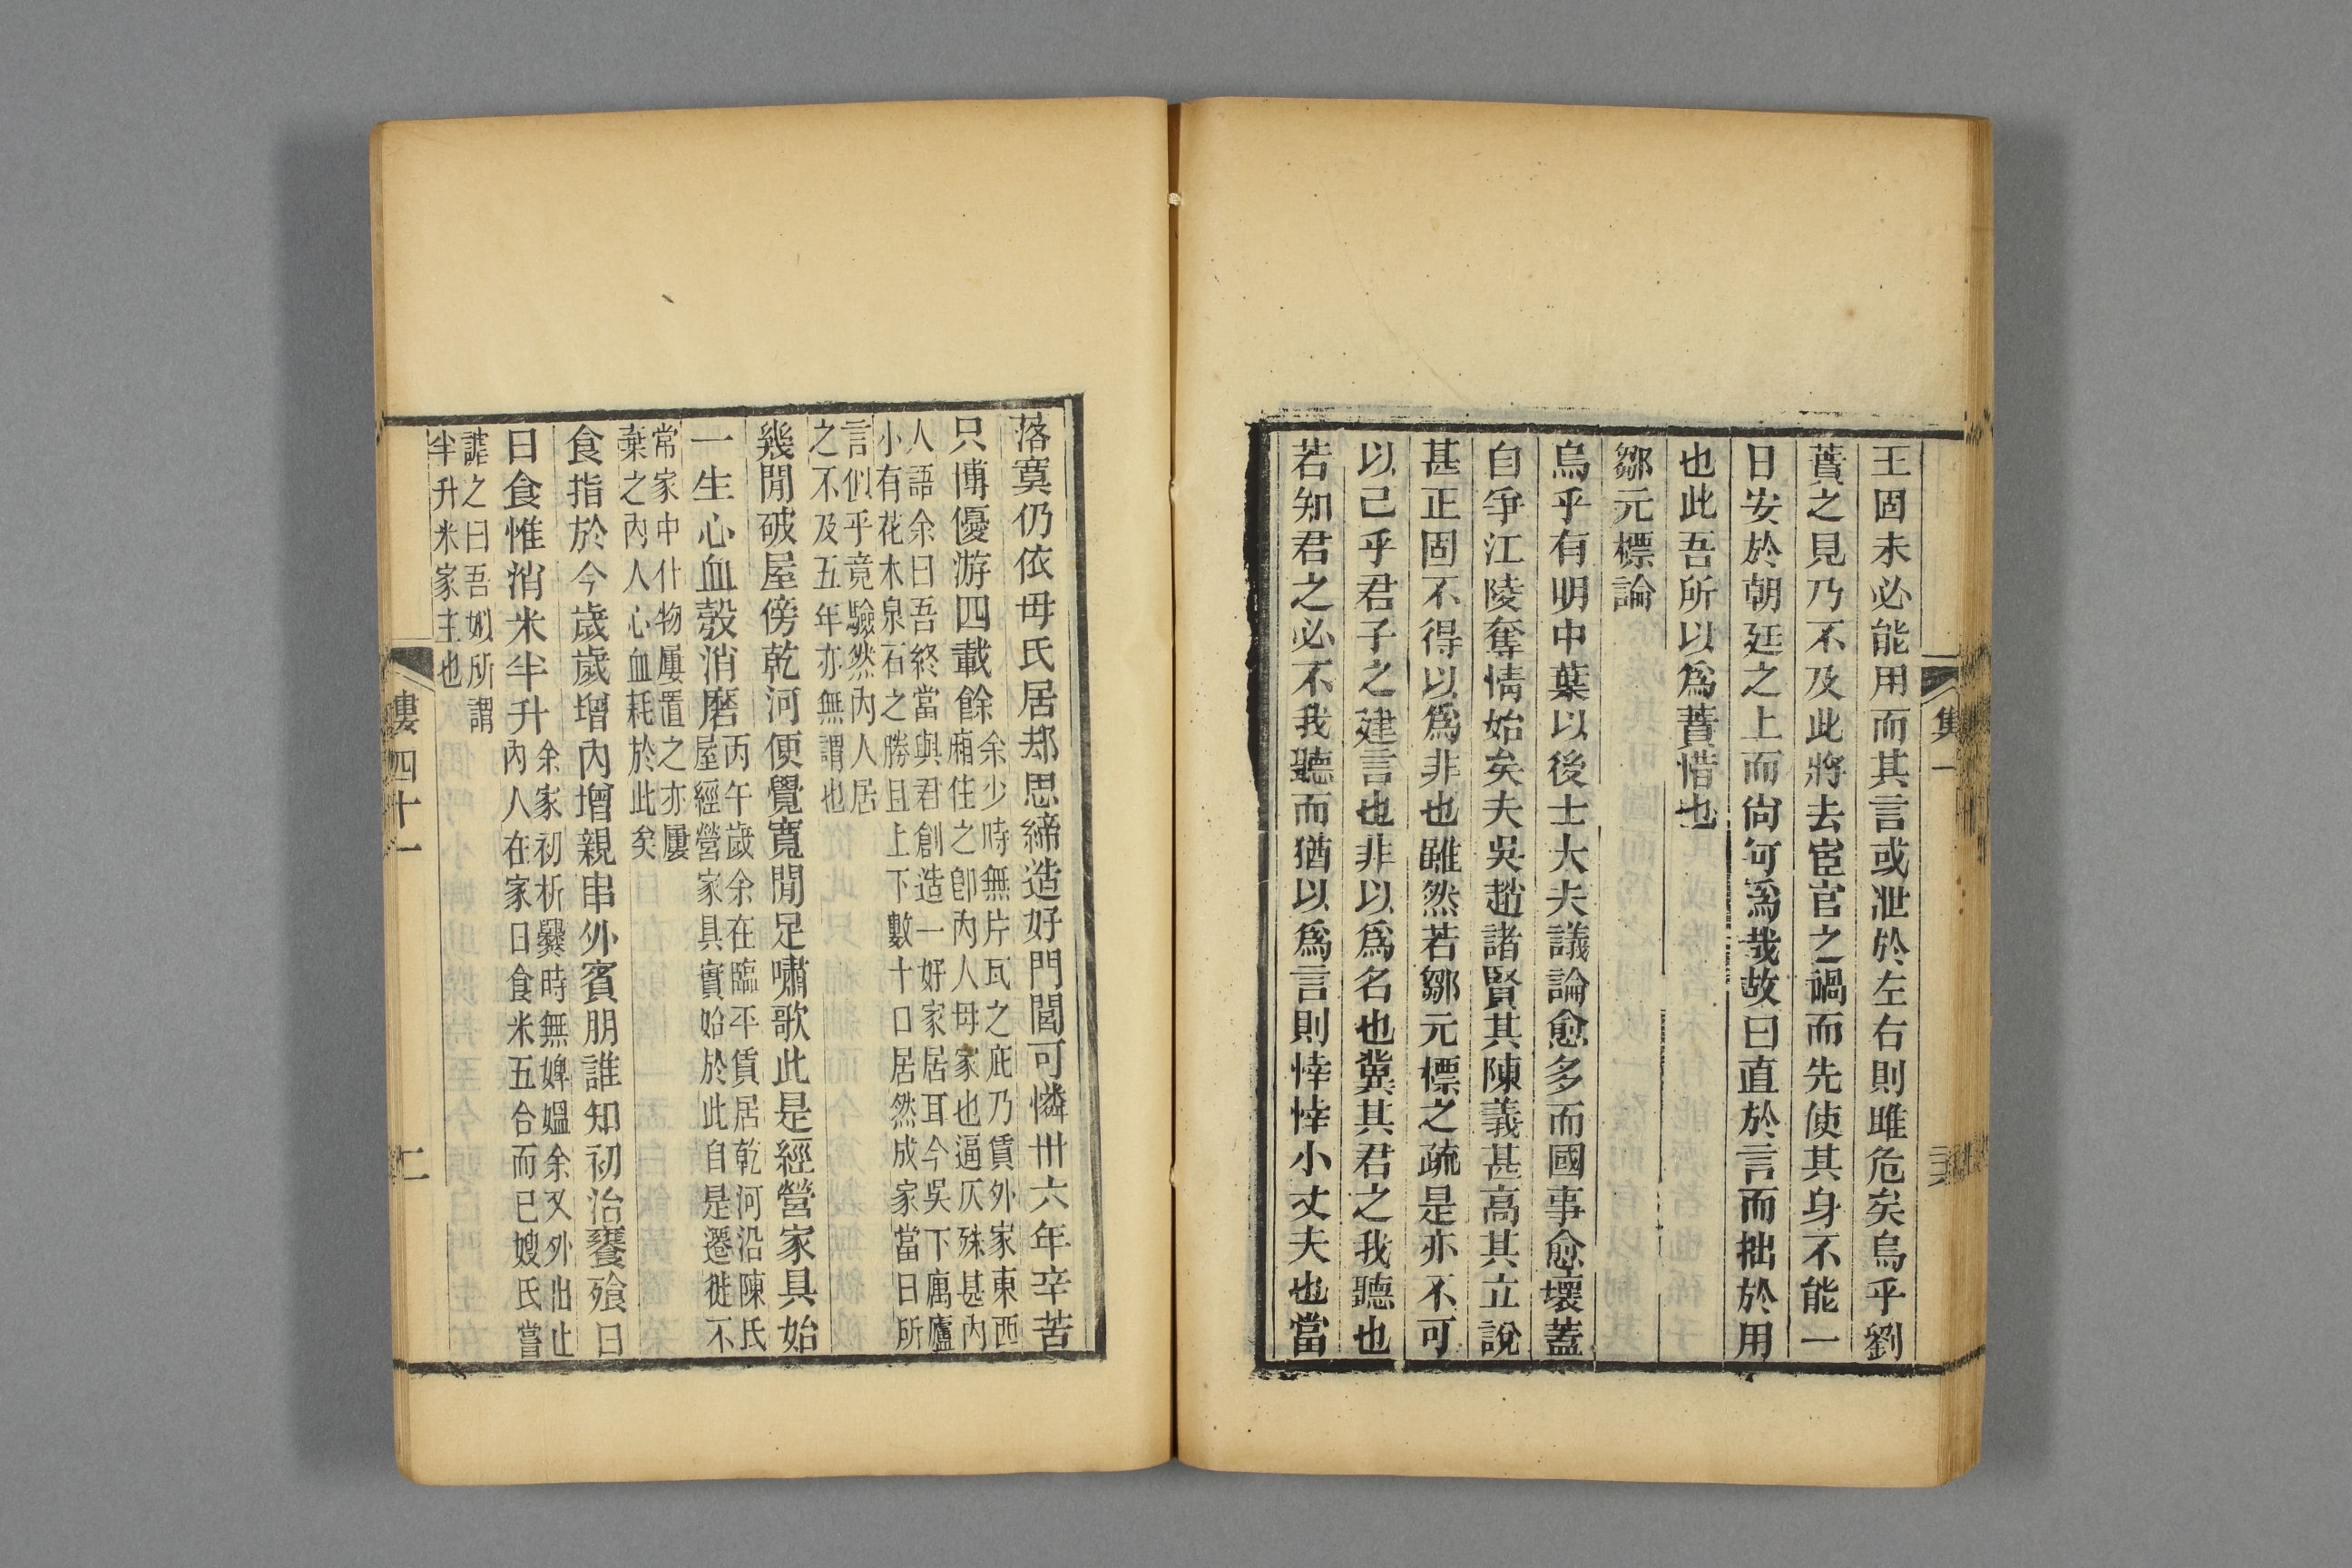 王固未必能用而其言或泄於左右則雖危矣烏乎劉
蕡之見乃不及此將去宦官之禍而先使其身不能一
日安於朝廷之上而尙何爲哉故曰直於言而拙於用
也此吾所以爲蕡惜也
鄒元標論
烏乎有明中葉以後士大夫議論愈多而國事愈壞蓋
自爭江陵奪情始矣夫吳趙諸賢其陳義甚高其立說
甚正固不得以爲非也雖然若鄒元標之疏是亦不可
以己乎君子之建言也非以爲名也冀其君之我聽也
若知君之必不我聽而猶以爲言則悻悻小丈夫也當
集一
落寞仍依母氏居却思締造好門閭可憐卅六年辛苦
只博優游四載餘
余少時無片瓦之庇乃賃外家東西
廂住之卽內人母家也逼仄殊甚內
人語余曰吾終當與君創造一好家居耳今吳下寓廬
小有花木泉石之勝且上下數十口居然成家當日所
言似乎竟驗然內人居
之不及五年亦無謂也
幾閒破屋傍乾河便覺寬閒足嘯歌此是經營家具始
一生心血彀消磨
丙午歲余在臨平賃居乾河沿陳氏
屋經營家具實始於此自是遷徙不
常家中什物屢置之亦屢
棄之內人心血耗於此矣
食指於今歲歲增內增親串外賓朋誰知初治饔飱日
日食惟消米半升
余家初析爨時無婢媼余又外出止
內人在家日食米五合而已嫂氏嘗
謔之曰吾姒所謂
半升米家主也
婁四十一
二